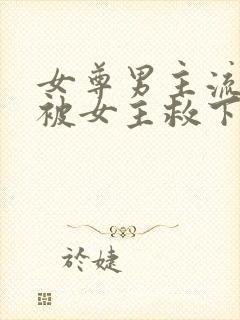 女尊男主流
被女主救下
於婕